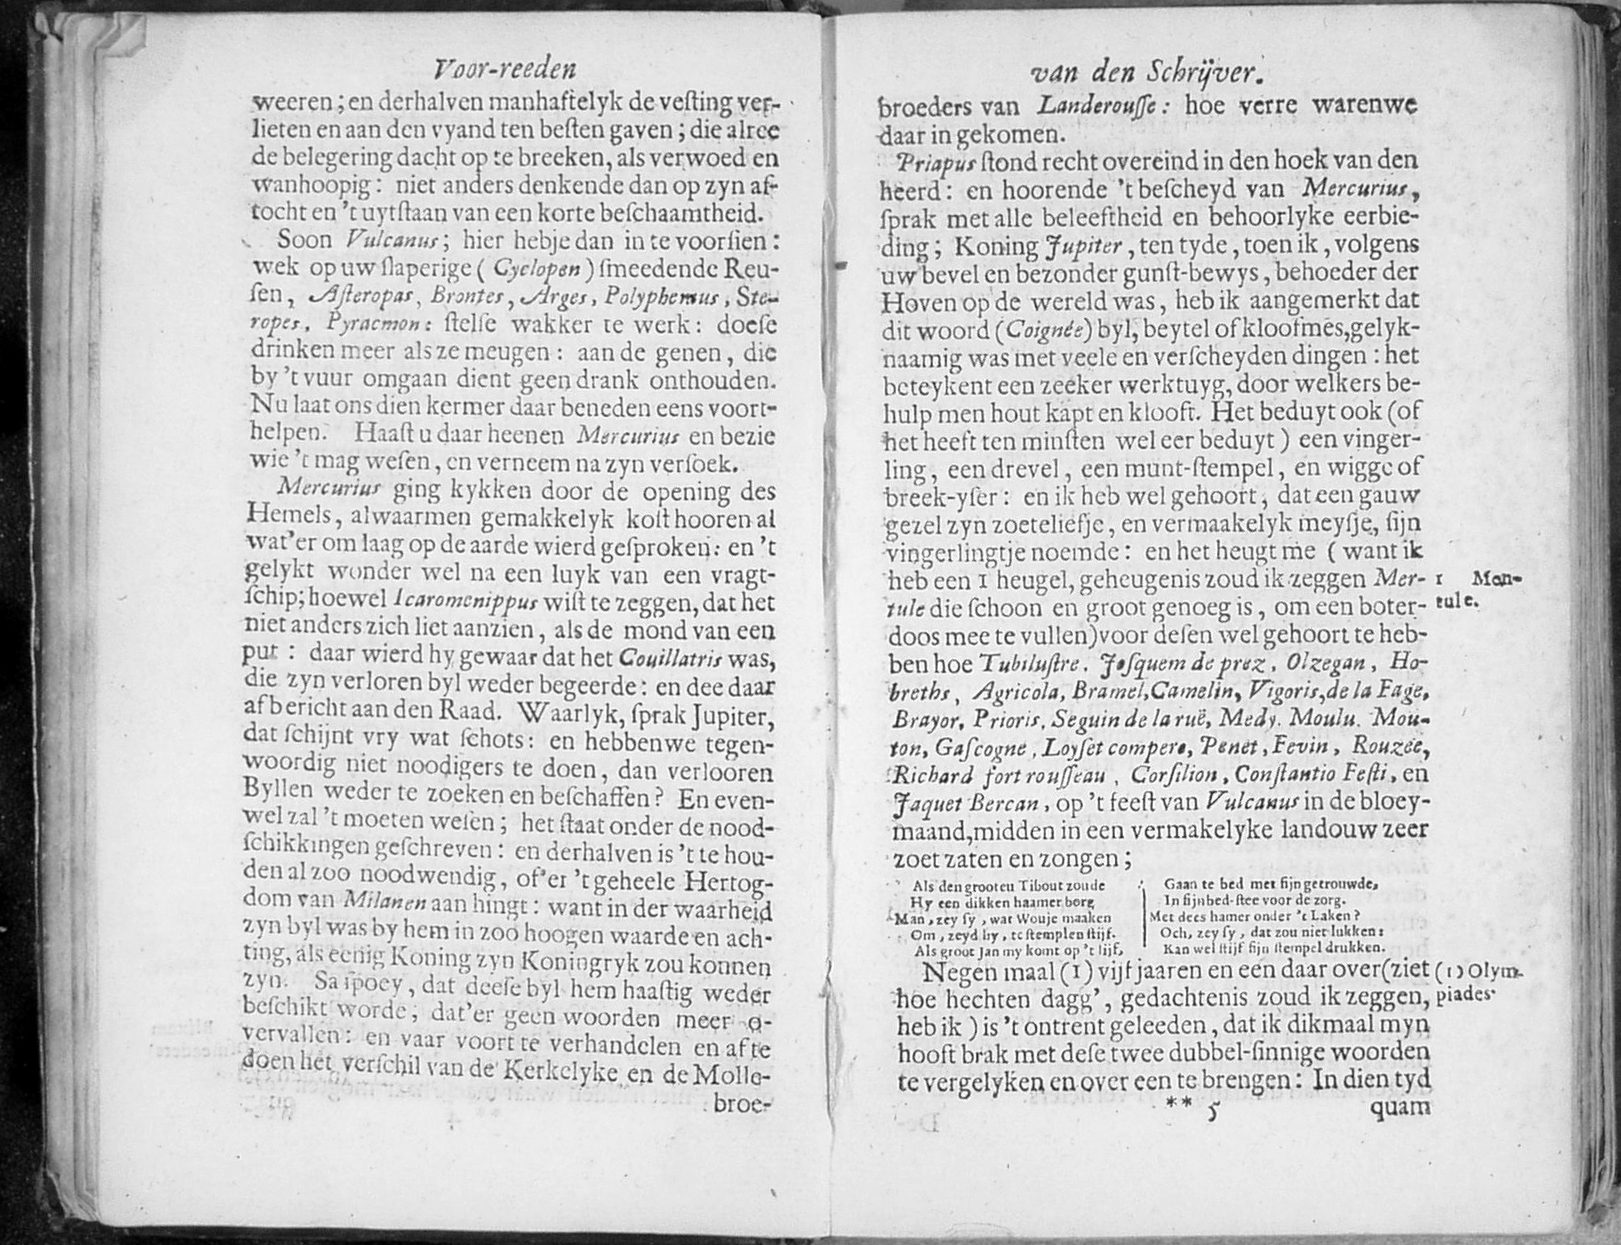 Voor-reeden
weeren; en derhalven manhaftelyk de vesting ver-
lieten en aan den vyand ten besten gaven; die alree
de belegering dacht op te breeken, als verwoed en
wanhoopig: niet anders denkende dan op zyn af-
tocht en 't uytstaan van een korte beschaamtheid.
Soon Vulcanus; hier hebje dan in te voorsien:
wek op uw slaperige ( Cyclopen ) smeedende Reu-
sen, Asteropas, Brontes, Arges, Polyphemus, Ste-
ropes, Pyracmon: stelse wakker te werk: doese
drinken meer als ze meugen: aan de genen, die
by 't vuur omgaan dient geen drank onthouden.
Nu laat ons dien kermer daar beneden eens voort-
helpen. Haast u daar heenen Mercurius en bezie
wie 't mag wesen, en verneem na zyn versoek.
Mercurius ging kykken door de opening des
Hemels, alwaarmen gemakkelyk kost hooren al
wat'er om laag op de aarde wierd gesproken: en 't
gelykt wonder wel na een luyk van een vragt-
schip; hoewel Icaromenippus wist te zeggen, dat het
niet anders zich liet aanzien, als de mond van een
put: daar wierd hy gewaar dat het Couillatris was,
die zyn verloren byl weder begeerde: en dee daar
af bericht aan den Raad. Waarlyk, sprak Jupiter,
dat schijnt vry wat schots: en hebbenwe tegen-
woordig niet noodigers te doen, dan verlooren
Byllen weder te zoeken en beschaffen? En even-
wel zal 't moeten wesen; het staat onder de nood-
schikkingen geschreven: en derhalven is 't te hou-
den al zoo noodwendig, of'er 't geheele Hertog-
dom van Milanen aan hingt: want in der waarheid
zyn byl was by hem in zoo hoogen waarde en ach-
ting, als eenig Koning zyn Koningryk zou konnen
zyn. Sa spoey, dat deese byl hem haastig weder
beschikt worde; dat'er geen woorden meer o-
vervallen: en vaar voort te verhandelen en af te
doen het verschil van de Kerkelyke en de Molle-
broe-
van den Schrijver.
broeders van Landerousse: hoe verre warenwe
daar in gekomen.
Priapus stond recht overeind in den hoek van den
heerd: en hoorende 't bescheyd van Mercurius,
sprak met alle beleeftheid en behoorlyke eerbie-
ding; Koning Jupiter, ten tyde, toen ik, volgens
uw bevel en bezonder gunst-bewys, behoeder der
Hoven op de wereld was, heb ik aangemerkt dat
dit woord (Coignée) byl, beytel of kloofmes, gelyk-
naamig was met veele en verscheyden dingen: het
beteykent een zeeker werktuyg, door welkers be-
hulp men hout kapt en klooft. Het beduyt ook (of
het heeft ten minsten wel eer beduyt) een vinger-
ling, een drevel, een munt-stempel, en wigge of
breek-yser: en ik heb wel gehoort, dat een gauw
gezel zyn zoeteliefje, en vermaakelyk meysje, sijn
vingerlingtje noemde: en het heugt me ( want ik
heb een 1 heugel, geheugenis zoud ik zeggen Mer- 1 Men-
tule die schoon en groot genoeg is, om een boter- tule.
doos mee te vullen) voor desen wel gehoort te heb-
ben hoe Tubilustre. Josquem de prez, Olzegan, Ho-
breths, Agricola, Bramel, Camelin, Vigoris, de la Fage,
Brayor, Prioris, Seguin de la ruë, Medy. Moulu. Mou-
ton, Gascogne, Loyset compere, Penet, Fevin, Rouzée,
Richard fort rousseau, Corsilion, Constantio Festi, en
Jaquet Bercan, op 't feest van Vulcanus in de bloey-
maand, midden in een vermakelyke landouw zeer
zoet zaten en zongen;
Als den grooten Tibout zoude
Hy een dikken haamer borg
Man, zey sy, wat Wouje maaken
Om, zeyd hy, te stemplen stijf.
Als groot Jan my komt op 't lijf,
Gaan te bed met sijn getrouwde,
In sijn bed-stee voor de zorg.
Met dees hamer onder 't Laken?
Och, zey sy, dat zou niet lukken:
Kan wel stijf sijn stempel drukken.
Negen maal (1) vijf jaaren en een daar over (ziet (1) Olym-
hoe hechten dagg', gedachtenis zoud ik zeggen, piades.
heb ik ) is 't ontrent geleeden, dat ik dikmaal myn
hooft brak met dese twee dubbel-sinnige woorden
te vergelyken en over een te brengen: In dien tyd
** 5 quam